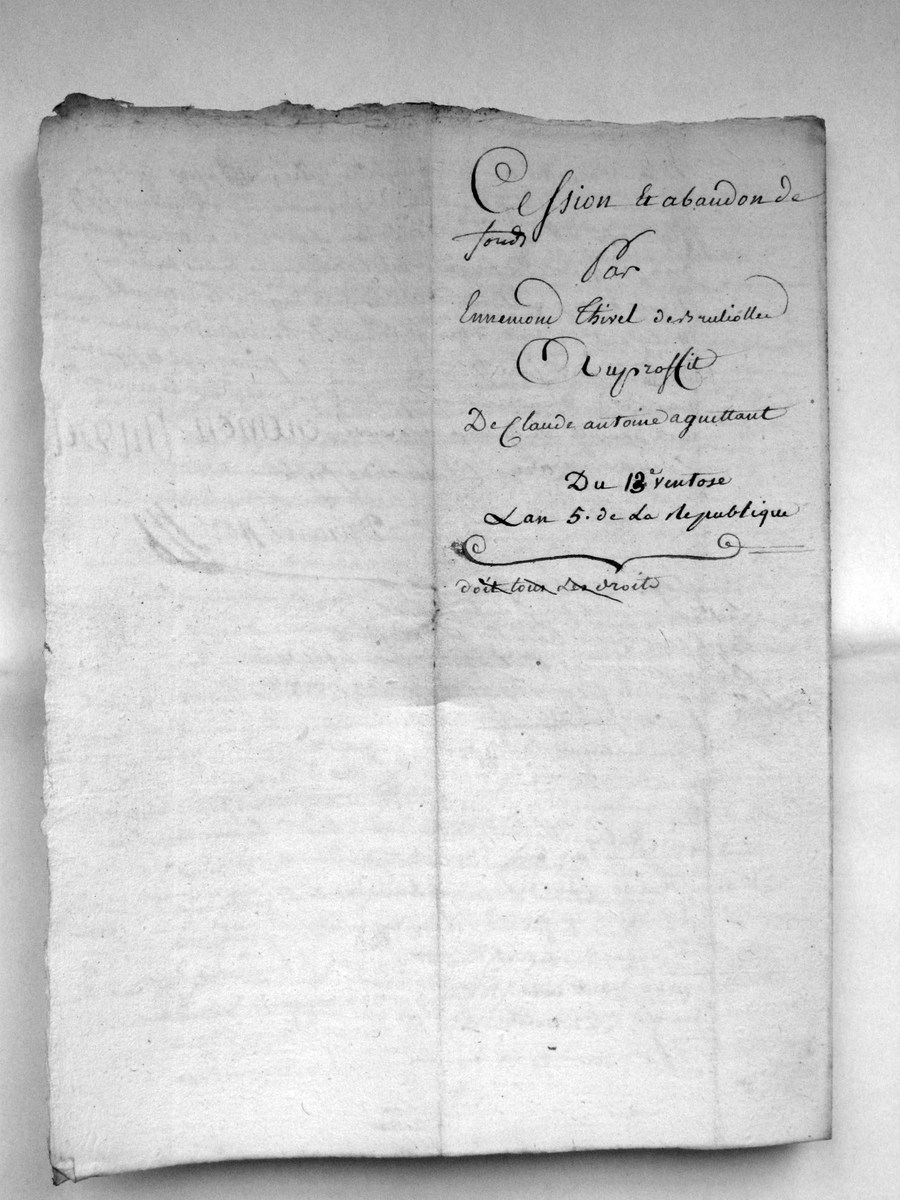 Cession Et abandon de
fonds
Par
Ennemond Thivel de Bruliolle
Au proffit
De Claude antoine aguettant
Du 13e ventose
Lan 5. de La Republique
doit tous les droits